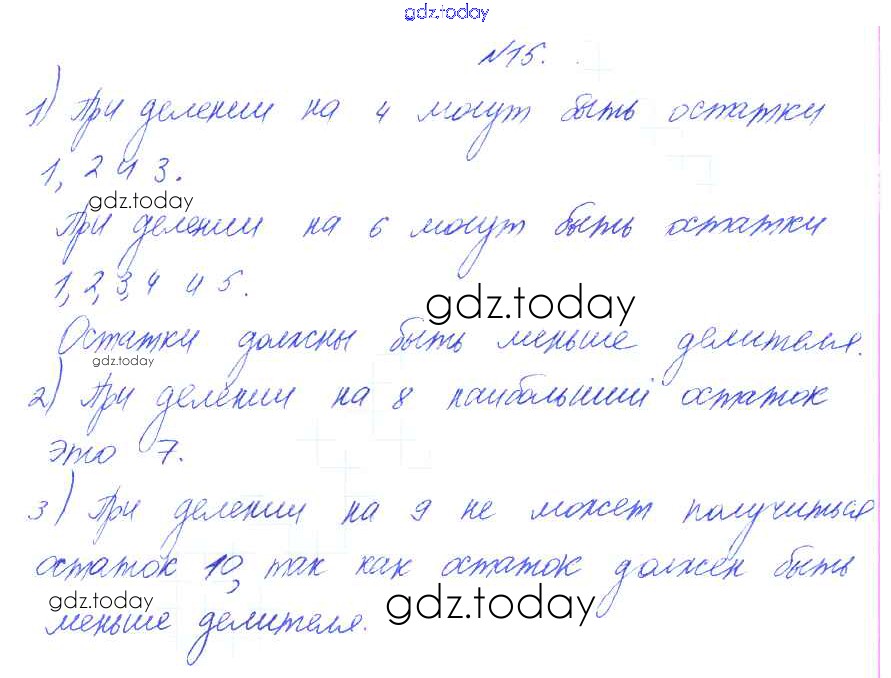 gdz.today
№15.
1) При делении на 4 могут быть остатки
1, 2 и 3.
gdz.today
При делении на 6 могут быть остатки
1, 2, 3, 4 и 5.
gdz.today
Остатки должны быть меньше делителя.
gdz.today
2) При делении на 8 наибольший остаток
это 7.
3) При делении на 9 не может получиться
остаток 10, так как остаток должен быть
gdz.today
gdz.today
меньше делителя.